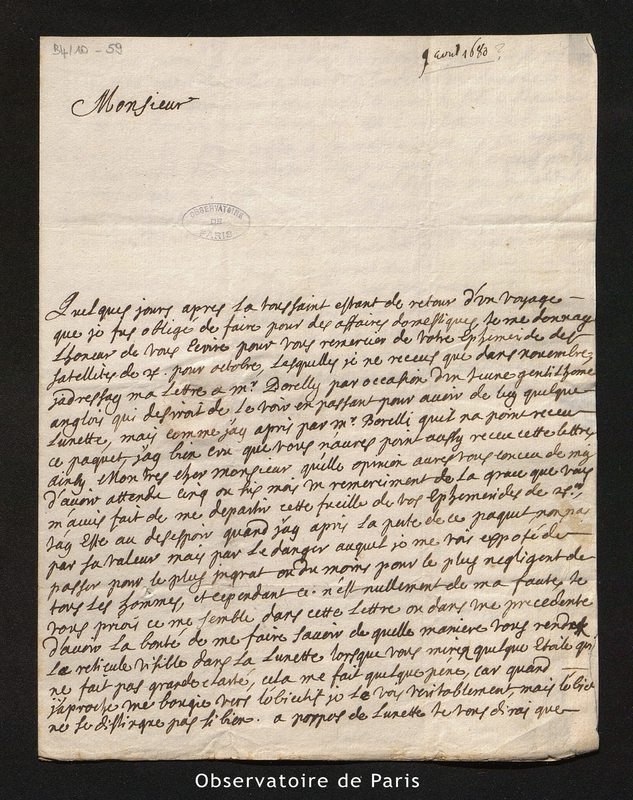 B4/10 - 59
9 avril 1680 ?
Monsieur
OBSERVATOIRE
DE
PARIS
Quelques jours apres La toussaint estant de retour d'vn voyage
que je fus oblige de faire pour des affaires domestiques je me donnay
Lhoneur de vous Ecrire pour vous remercier de votre Ephemeride des
satellites de pour octobre, Lasquelle je ne receus que dans novembre,
jadressay ma Lettre a mr. Borelly par occasion d'vn jeune gentilhome
anglois qui desiroit de Le voir en passant pour avoir de luy quelque
Lunette, mais comme j'ay apris par mr. Borelli quil na point receu
ce paquet jay bien creu que vous naures point aussy receu cette lettre
ainsy, Mon tres cher monsieur qu'elle opinion aures vous conceu de moy
d'avoir attendu cinq ou six mois vn remerciment de La grace que vous
m'avies fait de me departir cette fueille de vos Ephemerides de
jay Esté au desespoir quand jay apris La perte de ce paquet non pas
par sa valeur mais par Le danger auquel je me vois exposé de
passer pour le plus ingrat ou du moins pour le plus negligent de
tous Les hommes, et cependant ce n'est nullement de ma faute, je
vous priois ce me semble dans cette Lettre ou dans vne precedente
d'avoir La bonté de me faire savoir de quelle maniere vous rendes
Le reticule visible dans La Lunette lorsque vous mirez quelque Etoile qui
ne fait pas grande clarté, cela me fait quelque pene, car quand
japroche vne bougie vers lobiectif je Le vois veritablement, mais lobiet
ne se distingue pas si bien. a propos de Lunette je vous dirai que
Observatoire de Paris